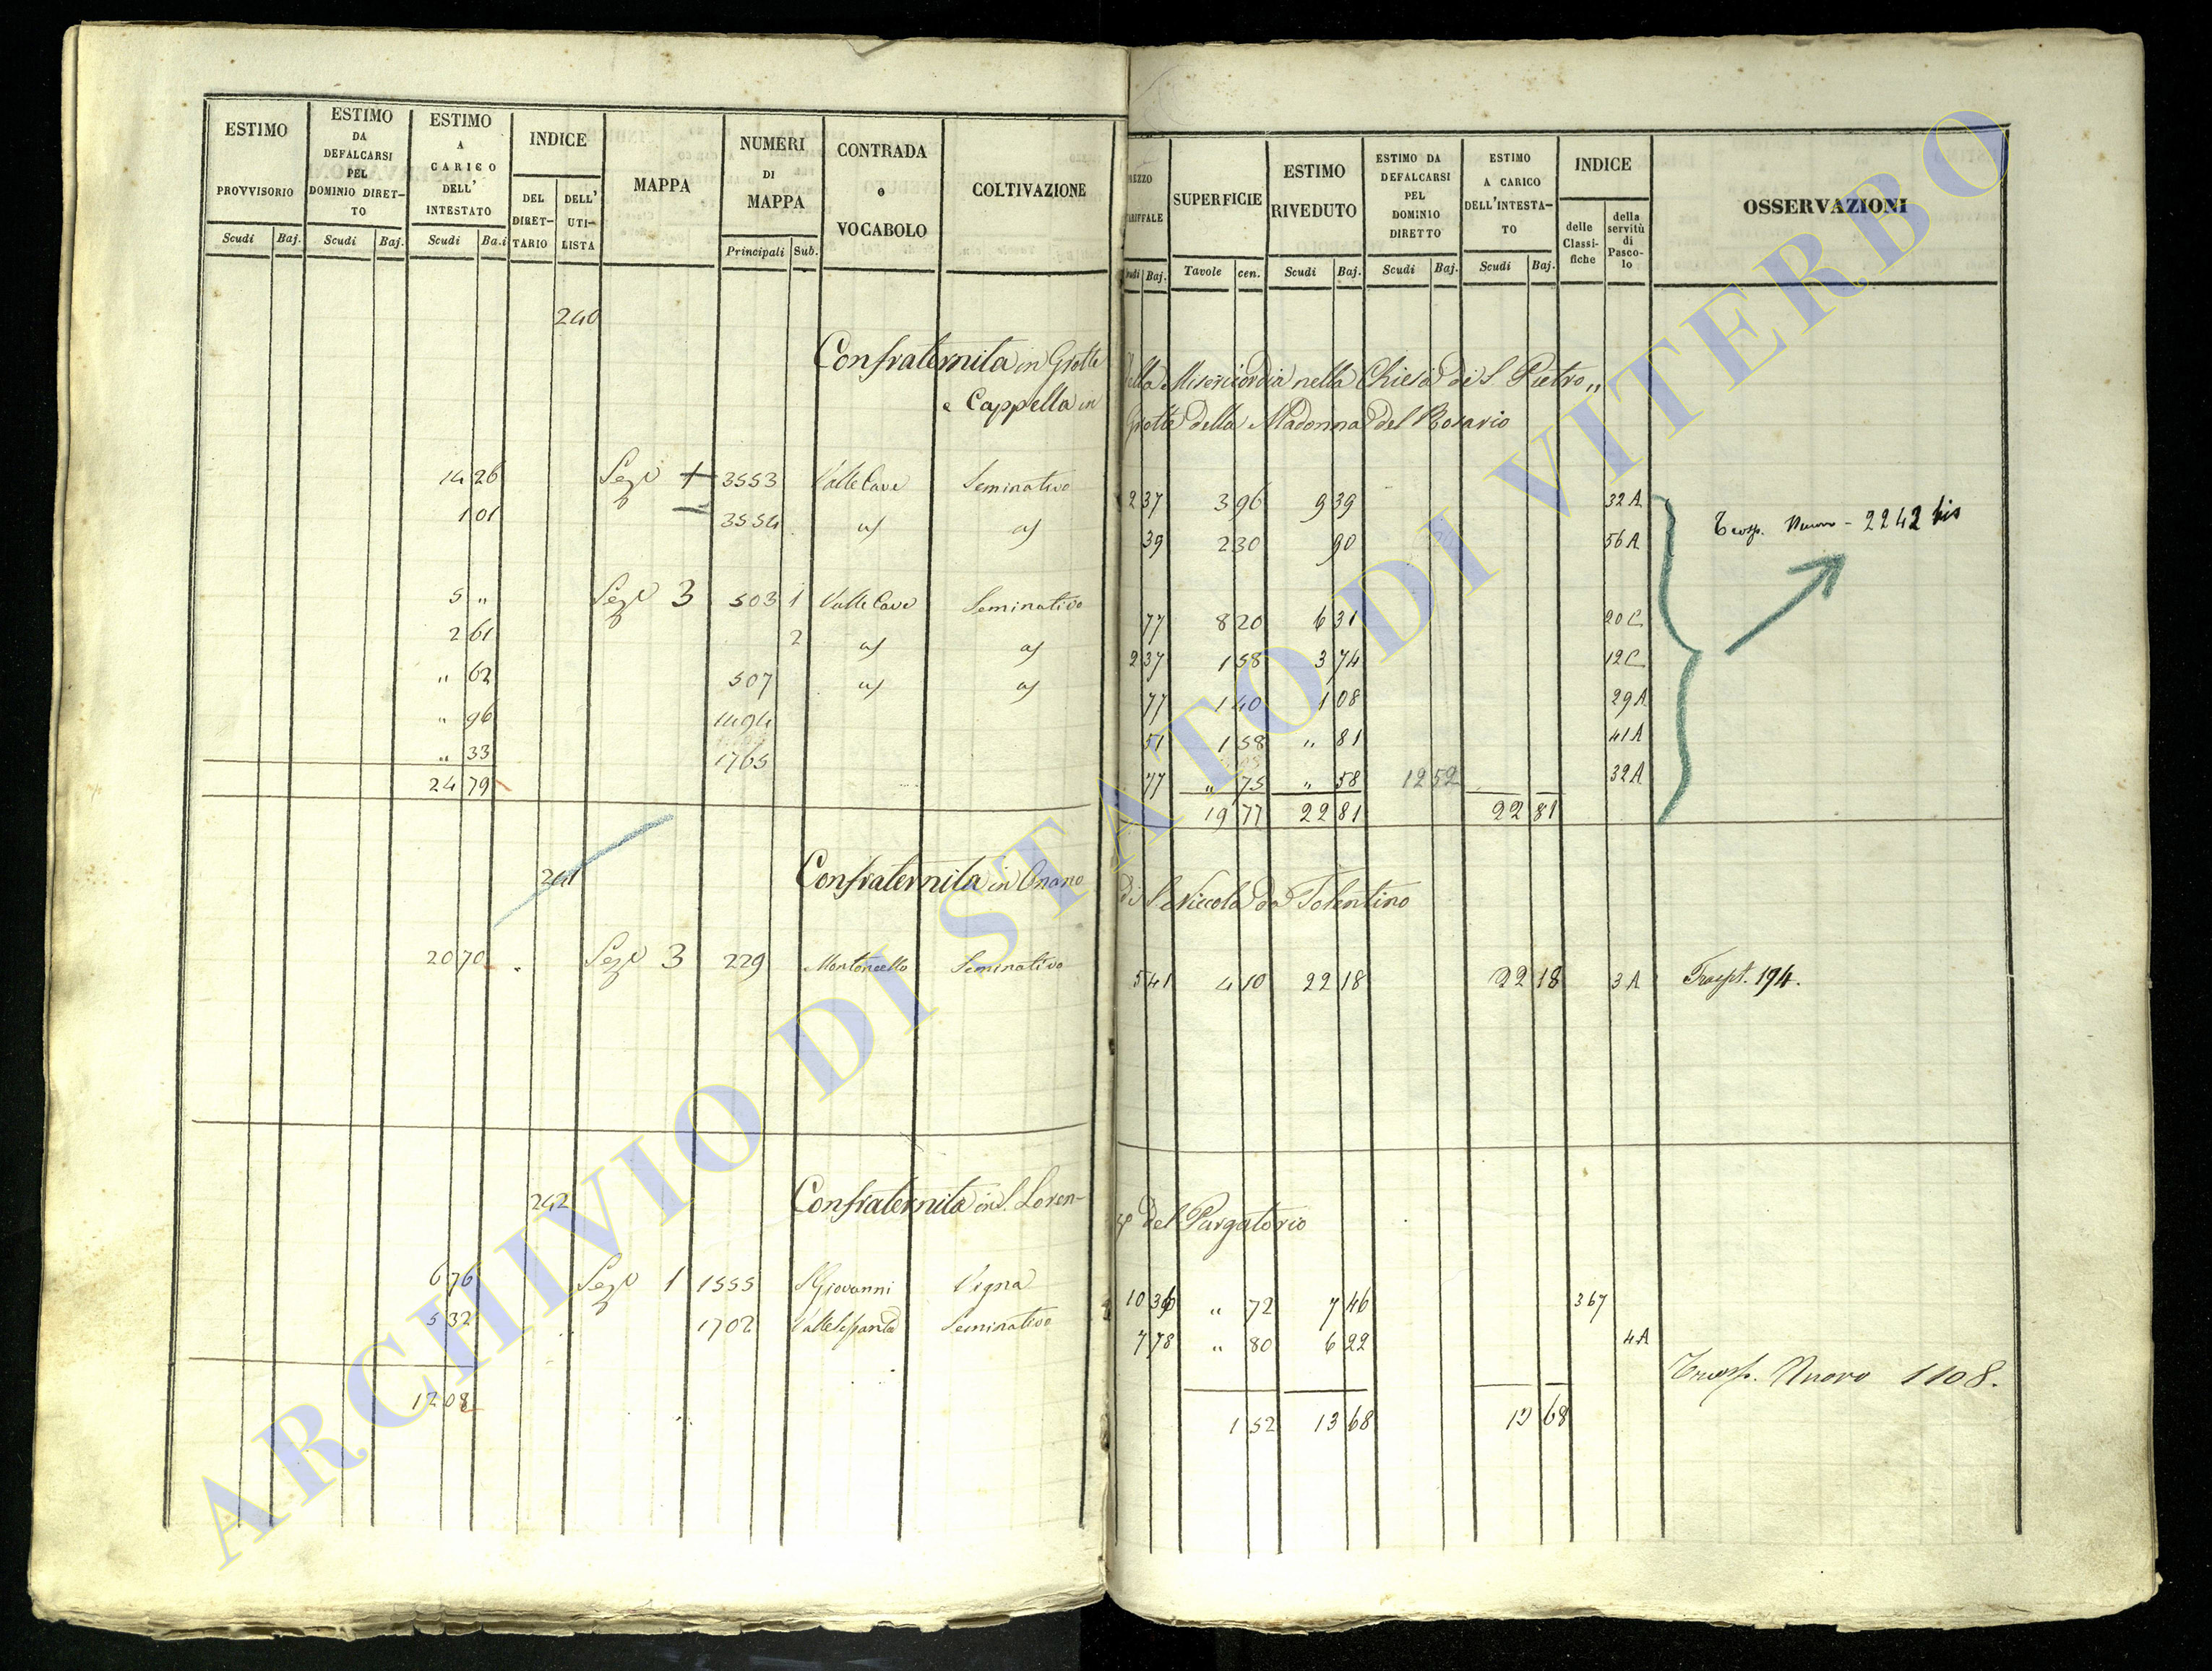 ESTIMO PROVVISORIO
ESTIMO DA DEFALCARSI PEL DOMINIO DIRET-TO
ESTIMO A CARICO DELL' INTESTATO
INDICE
DEL DIRET-TARIO
DELL' UTI-LISTA
MAPPA
NUMERI DI MAPPA
CONTRADA o VOCABOLO
COLTIVAZIONE
Scudi Baj. Scudi Baj. Scudi Ba.i Principali Sub.
SUPERFICIE
ESTIMO RIVEDUTO
ESTIMO DA DEFALCARSI PEL DOMINIO DIRETTO
ESTIMO A CARICO DELL'INTESTA-TO
INDICE
delle Classi-fiche
della servitù di Pasco-lo
OSSERVAZIONI
Baj. Tavole cen. Scudi Baj. Scudi Baj. Scudi Baj.
240
Confraternita in Grotte della Misericordia nella Chiesa di S. Pietro „
e Cappella in Grotte della Madonna del Rosario
14 26 Sez 1 3553 Valle Cave Seminativo 2 37 3 96 9 39 32 A
1 01 3554 39 2 30 90 56 A
Trasp. Nuovo - 2242 bis
5 „ Sez 3 503 1 Valle Cave Seminativo 77 8 20 6 31 20 C
2 61 2 2 37 1 58 3 74 12 C
„ 62 507 77 1 40 1 08 29 A
„ 96 1494 51 1 58 „ 81 41 A
„ 33 1765 77 „ 75 „ 58 12 52 32 A
24 79 19 77 22 81 22 81
241
Confraternita in Onano di S. Niccola da Tolentino
20 70 Sez 3 229 Montoncello Seminativo 5 41 4 10 22 18 22 18 3 A Traspt. 194.
242
Confraternita in S. Loren- del Purgatorio
6 76 Sez 1 1555 S Giovanni Vigna 10 36 „ 72 7 46 367
5 32 1702 Seminativo 7 78 „ 80 6 22 4 A
Trasp. Nuovo 1108.
12 08 1 52 13 68 13 68
ARCHIVIO DI STATO DI VITERBO